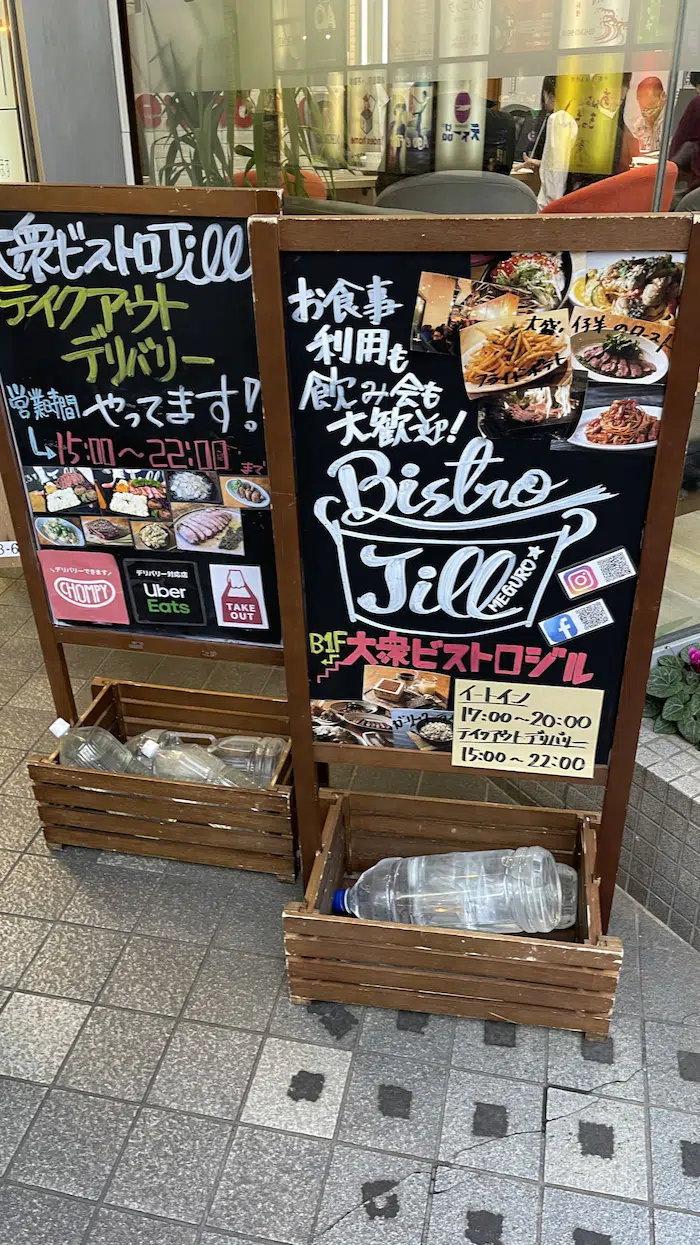 大衆ビストロJill
テイクアウト
デリバリー
営業時間 やってます!
↳15:00〜22:00まで
\デリバリーできます/
CHOMPY
デリバリー対応店
Uber
Eats
TAKE
OUT
お食事
利用も
飲み会も
大歓迎!
大盛
フライドポテト
仔羊のロースト
Bistro
Jill
MEGURO★
B1F 大衆ビストロジル
イートイン
17:00〜20:00
テイクアウトデリバリー
15:00〜22:00